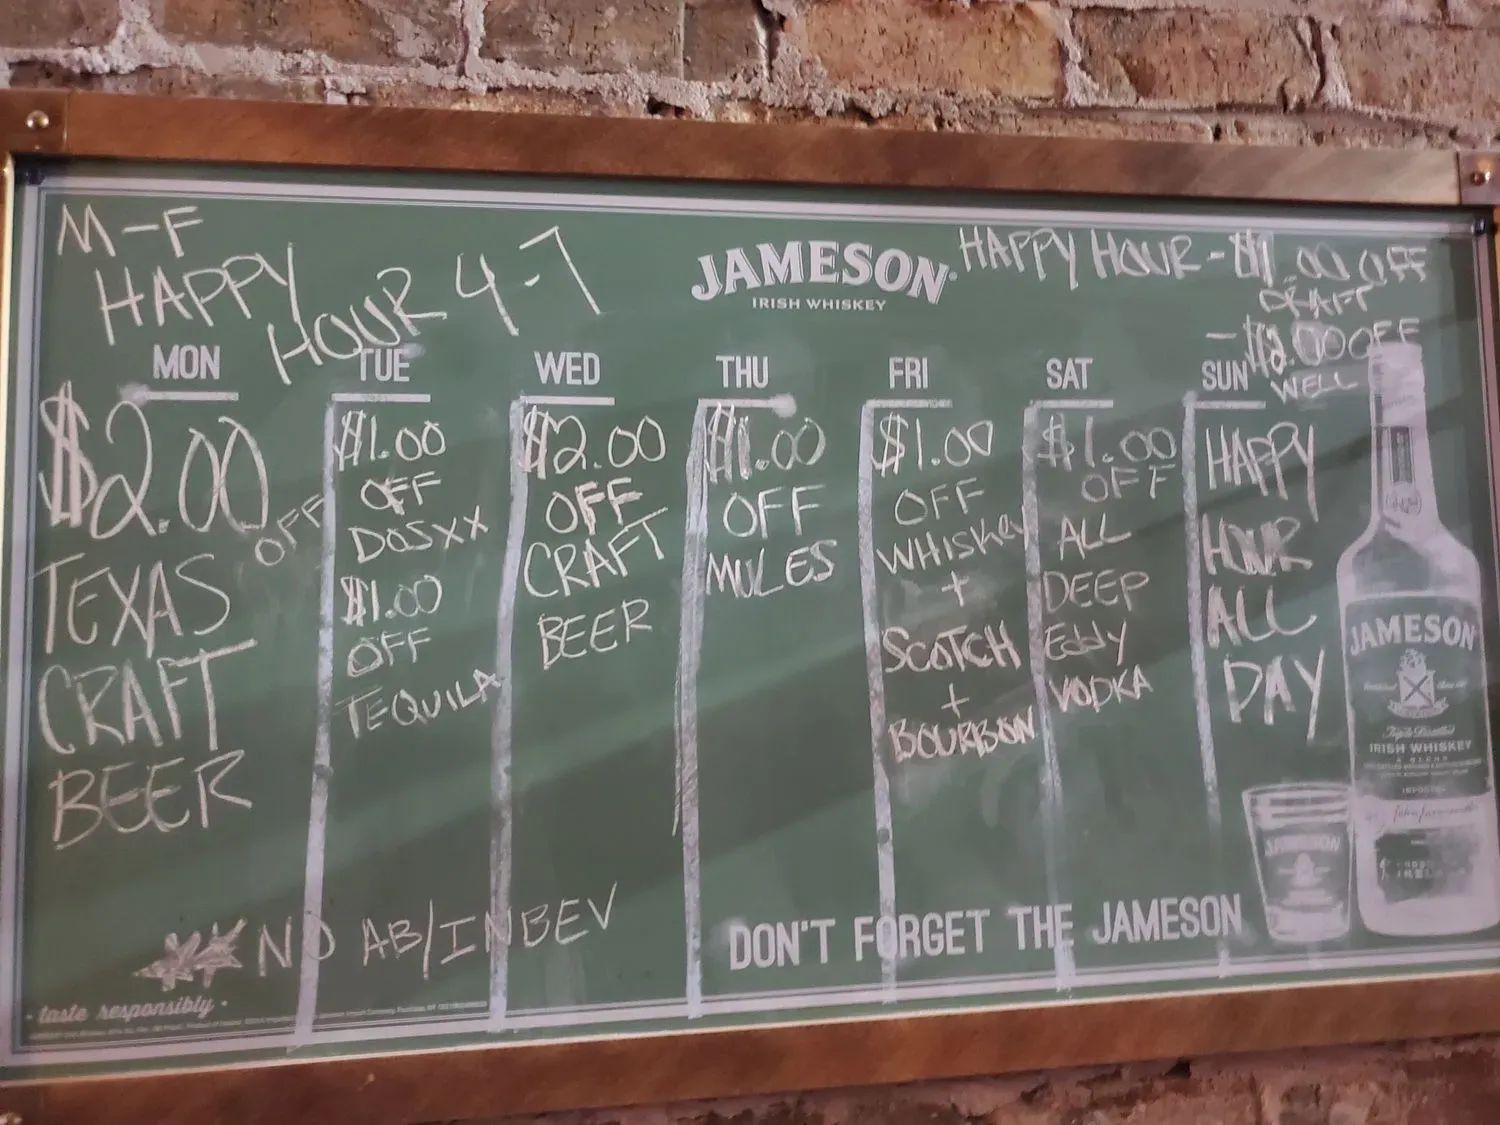 M-F
HAPPY
HOUR 4-7
JAMESON
IRISH WHISKEY
HAPPY HOUR - $1.00 OFF
DRAFT
- $2.00 OFF
WELL
MON
$2.00
OFF
TEXAS
CRAFT
BEER
TUE
$1.00
OFF
DOSXX
$1.00
OFF
TEQUILA
WED
$2.00
OFF
CRAFT
BEER
THU
$1.00
OFF
MULES
FRI
$1.00
OFF
WHISKEY
+
SCOTCH
+
BOURBON
SAT
$1.00
OFF
ALL
DEEP
EDDY
VODKA
SUN
HAPPY
HOUR
ALL
DAY
** NO AB/INBEV
DON'T FORGET THE JAMESON
• taste responsibly •
JAMESON
Triple Distilled
IRISH WHISKEY
JAMESON